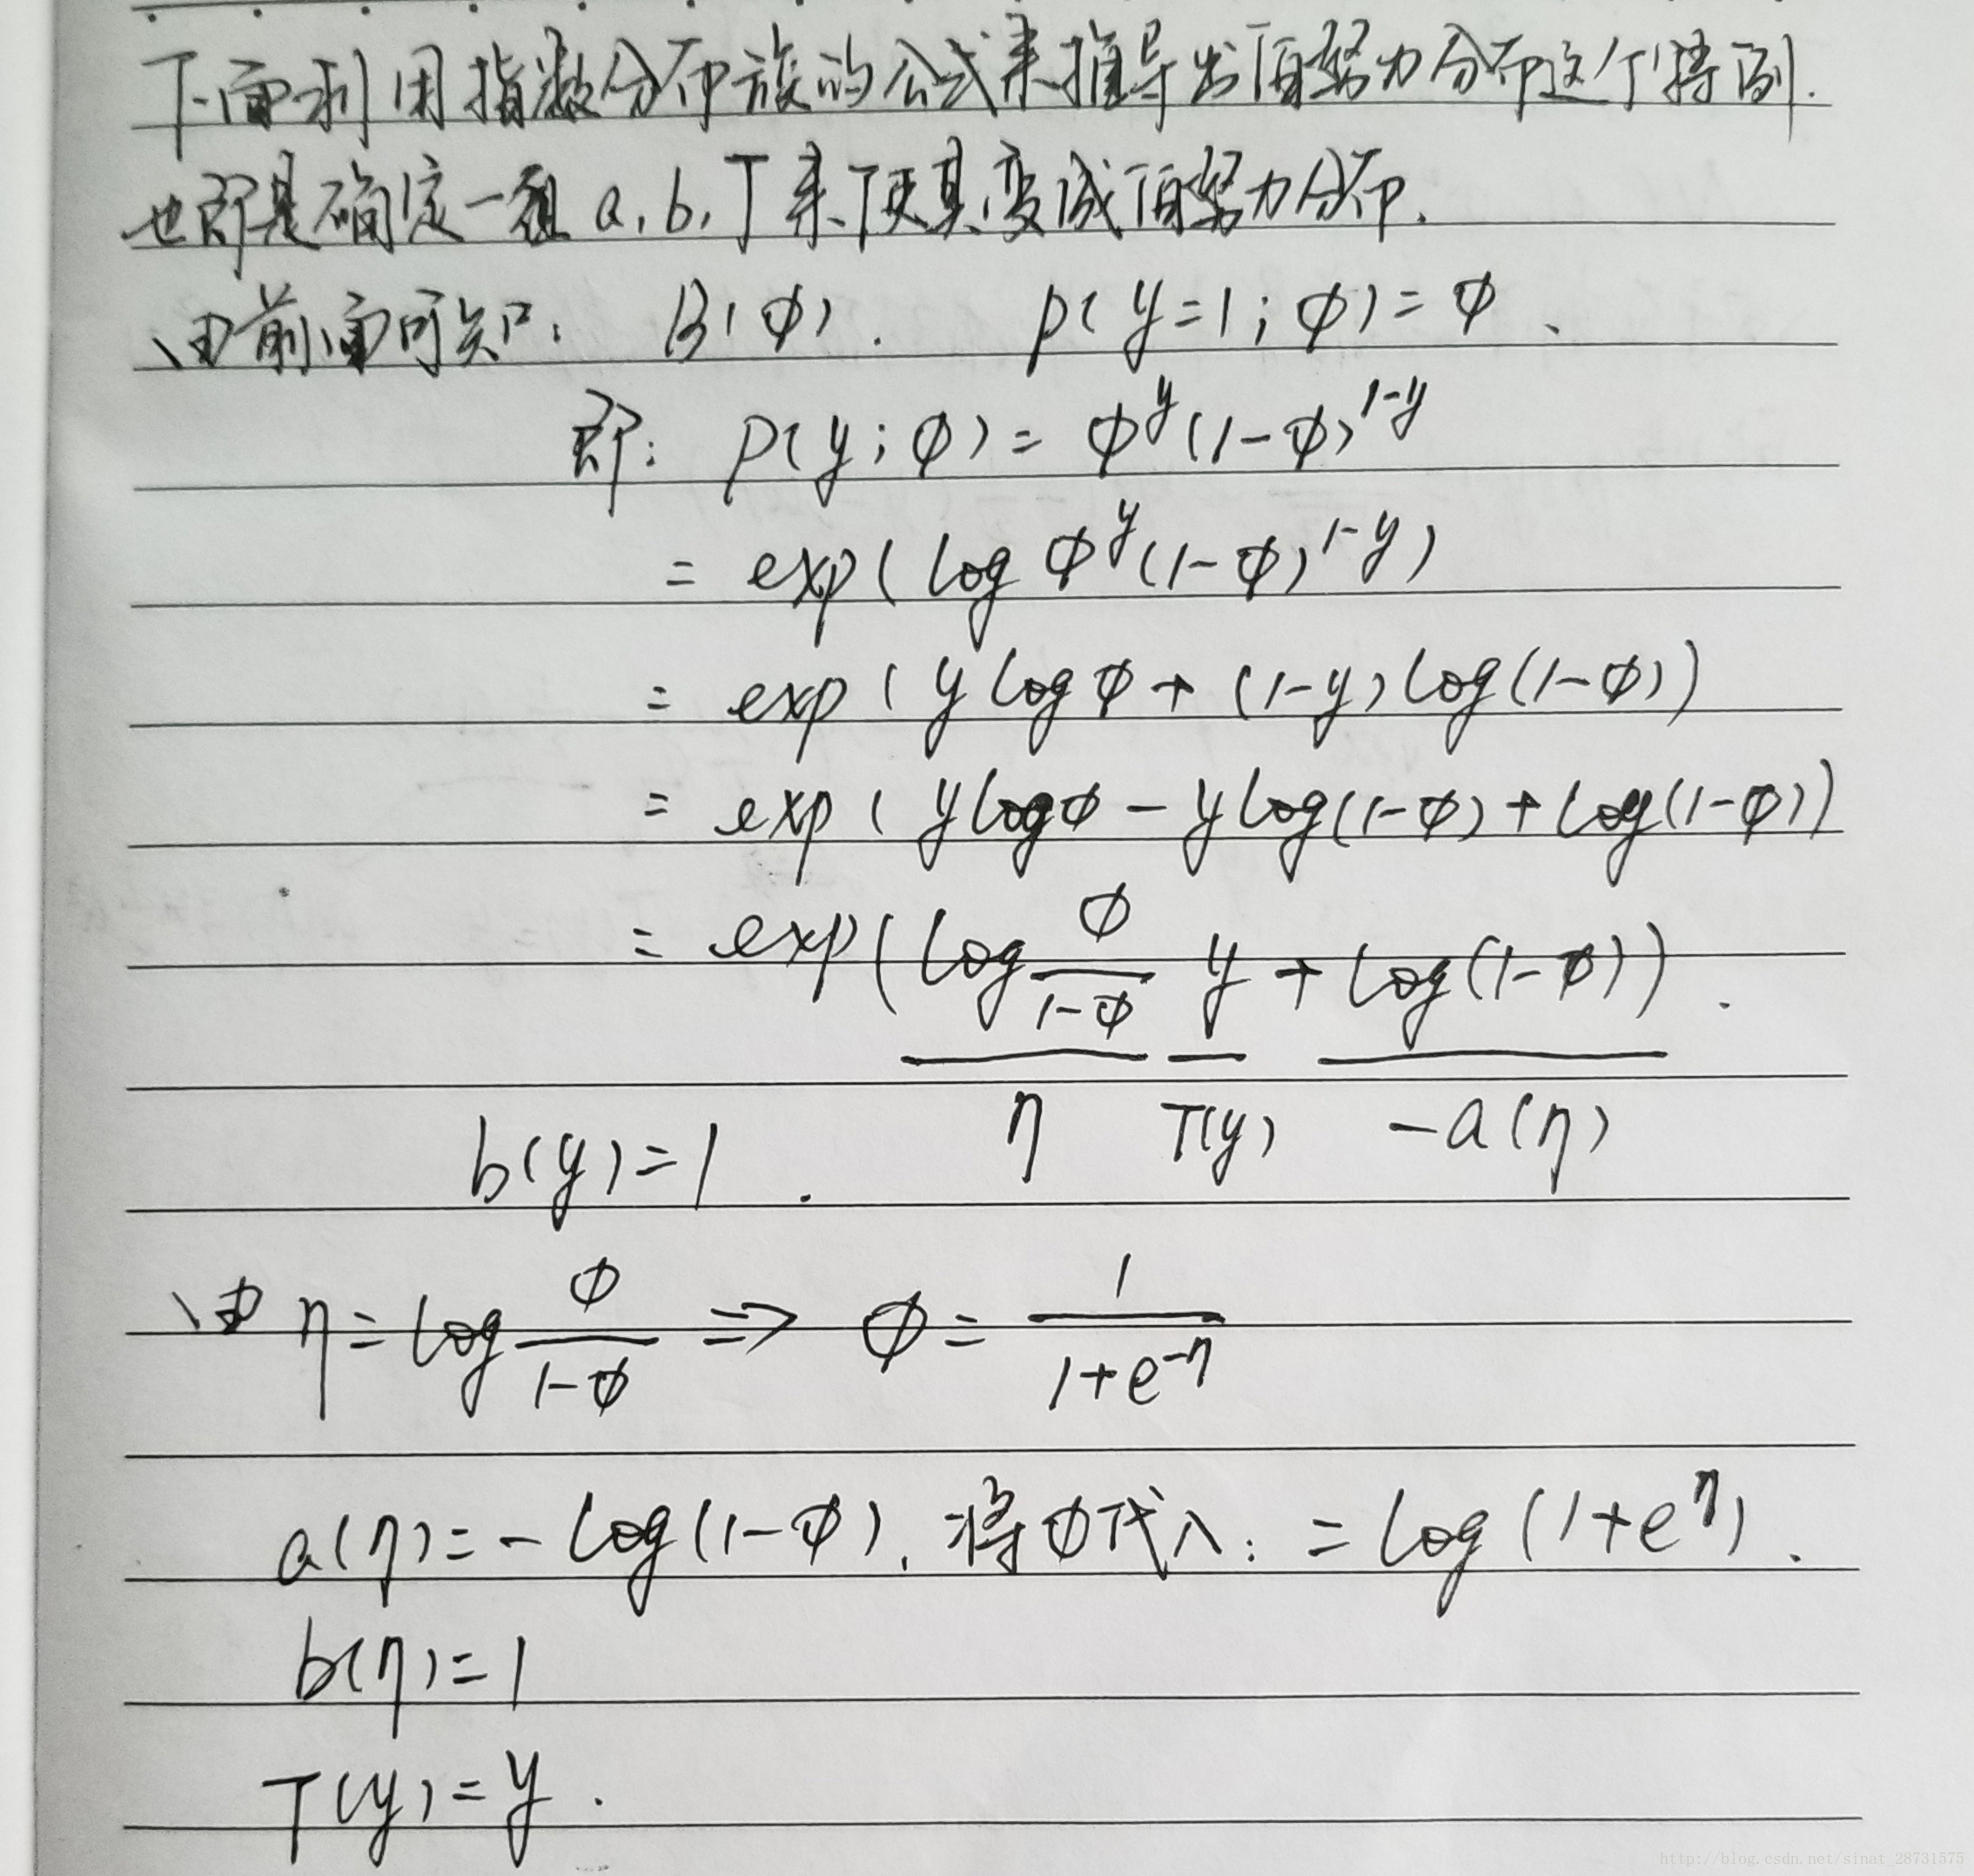 下面利用指数分布族的公式来推导出伯努力分布这个特例.
也即是确定一组 a, b, T 来使其变成伯努力分布.
由前面可知: B(φ). p(y=1;φ)=φ、
即: p(y;φ)= φ^y(1-φ)^{1-y}
= exp(log φ^y(1-φ)^{1-y})
= exp(y log φ + (1-y)log(1-φ))
= exp(y log φ - y log(1-φ) + log(1-φ))
= exp(log \frac{φ}{1-φ} y + log(1-φ)).
b(y)=1. η T(y) -a(η)
由 η = log \frac{φ}{1-φ} ⇒ φ = \frac{1}{1+e^{-η}}
a(η) = -log(1-φ), 将φ代入: = log(1+e^η).
b(η)=1
T(y)=y.
http://blog.csdn.net/sinat_28731575